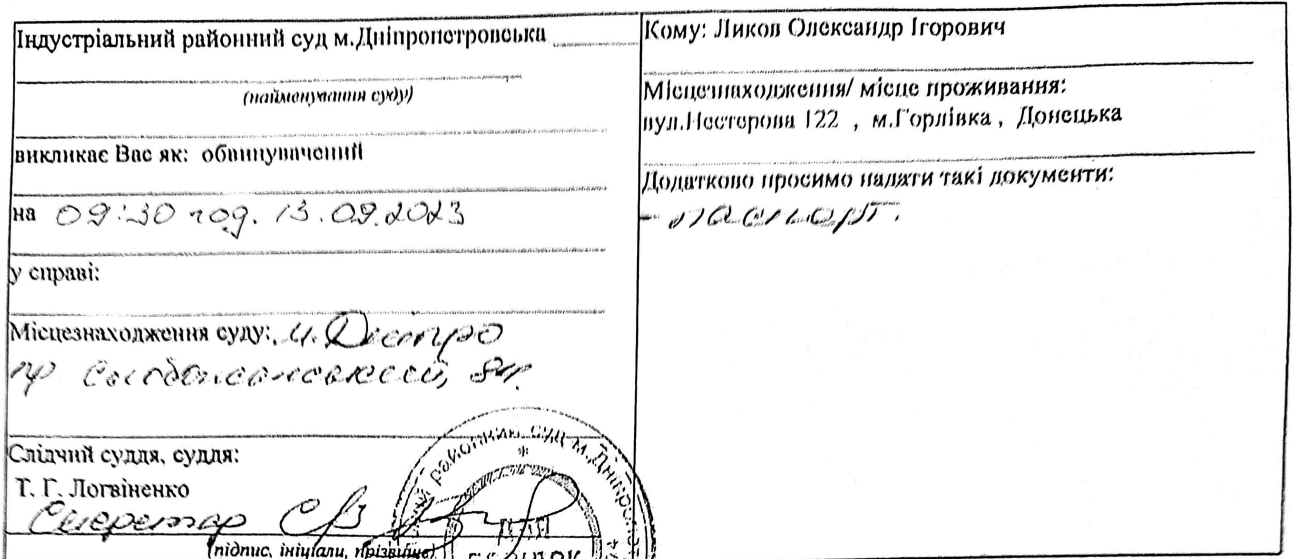 Індустріальний районний суд м.Дніпропетровська
(найменування суду)
викликає Вас як: обвинувачений
на 09:30 год. 13.09.2023
у справі:
Місцезнаходження суду: м. Дніпро
пр Слобожанський, 84.
Слідчий суддя, суддя:
Т. Г. Логвіненко
Секретар
(підпис, ініціали, прізвище)
Кому: Ликов Олександр Ігорович
Місцезнаходження/ місце проживання:
вул.Нестерова 122 , м.Горлівка , Донецька
Додатково просимо надати такі документи:
- паспорт.
районний суд м. Дніпро